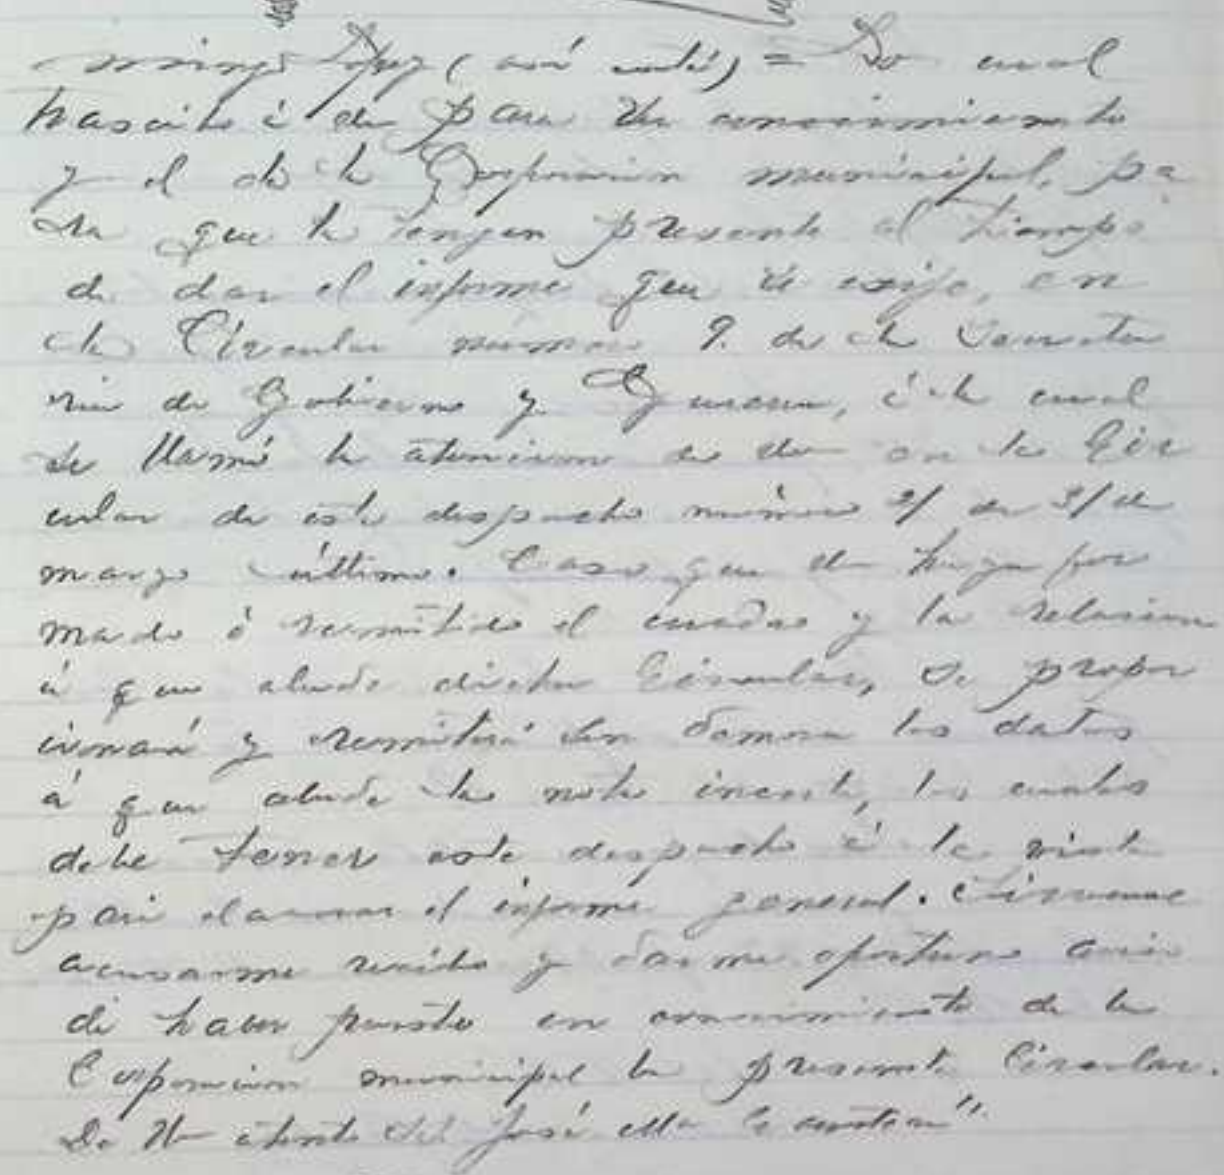 mingo López (así esta) = Lo cual
trascribo á U. para su conocimiento
y el de la Corporacion municipal, pa
ra que lo tengan presente al tiempo
de dar el informe que se exije, en
la Circular número 9. de la Secreta
ria de Gobierno y Guerra, á la cual
se llamó la atencion de U. en la Cir
cular de este despacho número de 31 de
marzo último. Caso que U. haya for
mado ó remitido el cuadro y la relacion
á que alude dicha Circular, se propor
cionará y remitirá sin demora los datos
á que alude la nota inserta, los cuales
debe tener este despacho á la vista
para el informe general. Sirvase
acusarme recibo y darme oportuno aviso
de haber puesto en conocimiento de la
Corporacion municipal la presente Circular.
De U. atento José